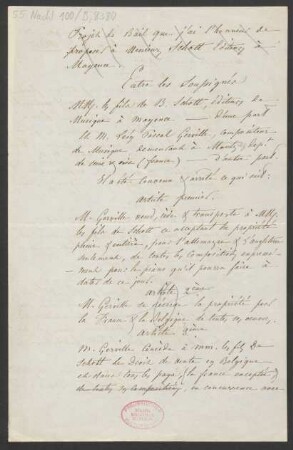 55 Nachl 100/B, 8384
Projet de Bail que j'ai l'honneur de
proposer à Monsieur Schott Editeur à
Mayence.
Entre les Soussignés
MM. les fils de B. Schott, Editeurs de
Musique à Mayence — d'une part
et M. Gerville, compositeur
de Musique demeurant à
(france) — d'autre part
Il a été convenu & arrêté ce qui suit:
article premier.
M. Gerville vend, cède & transporte à MM.
les fils de Schott en acceptant la propriété
pleine & entière, pour l'allemagne & l'angleterre
seulement, de toutes les Compositions
pour le piano qu'il pourra faire à
dater de ce jour.
article 2ème
M. Gerville se réserve la propriété pour
la France & la Belgique de toutes ses œuvres.
article 3ème
M. Gerville concède à mrs. les fils de
Schott le Droit de vente en Belgique
et dans tous les pays, (la france exceptée)
de toutes ses compositions, en concurrence avec